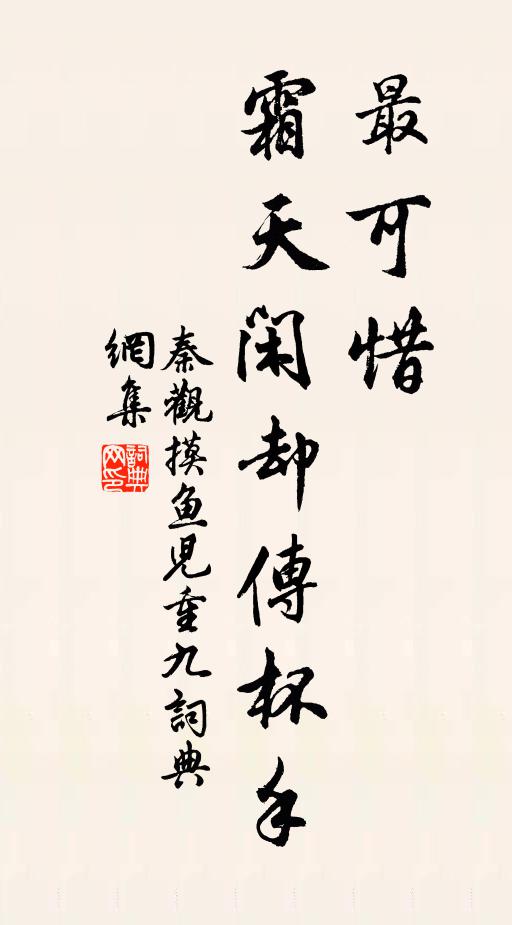 最可惜
霜天闲却傳杯手
秦觀摸鱼児重九詞典
網集
詞典
网印